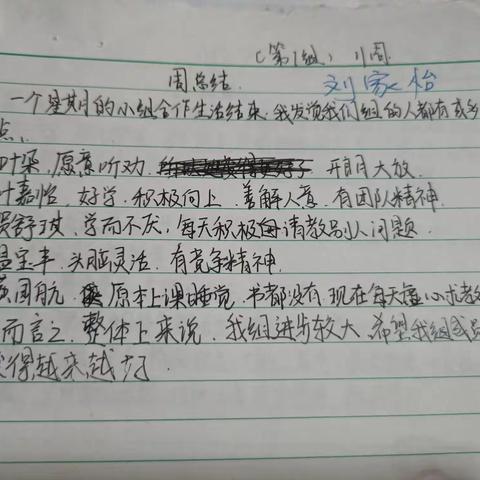 (第1组) 11周
周总结. 刘家怡
一个星期的小组合作生活结束.我发觉我们组的人都有
点.
叶荣,愿意听劝. 开明大放.
叶嘉怡,好学,积极向上,善解人意,有团队精神.
舒琪,学而不厌,每天积极请教别人问题.
宝丰,头脑灵活.有竞争精神.
国航,原本上课睡觉,书都没有.现在每天虚心求教
而言之,整体上来说,我组进步较大.希望我组成员
得越来越好.